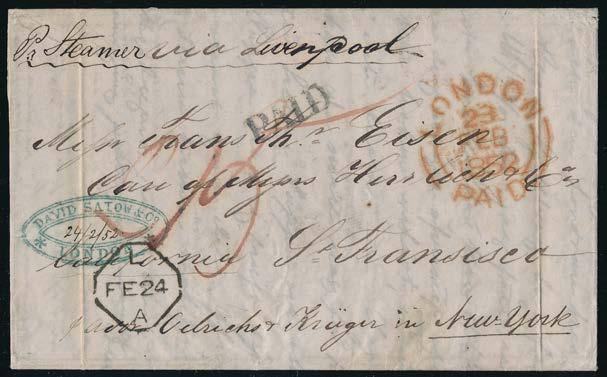 Pr Steamer via Liverpool
PAID
LONDON
23 FEB
1852
PAID
Franshr Eisen
Care of Messrs & Co
DAVID SATOW & Co
24/2/52
LONDON
California St Fransisco
L
FE24
A
Oelrichs & Krüger in New-York